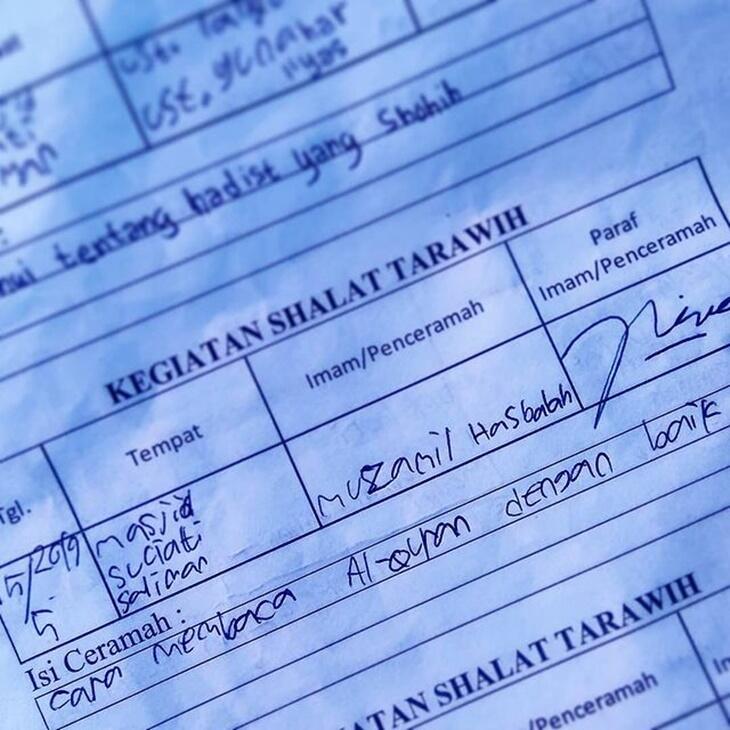 ust. yunahar
ilyas
:
tentang hadist yang Shohih
KEGIATAN SHALAT TARAWIH
Tgl.
Tempat
Imam/Penceramah
Paraf
Imam/Penceramah
5/2019
5
masjid
suciati
saliman
muzamil Hasbalah
Isi Ceramah :
cara membaca Al-quran dengan baik
KEGIATAN SHALAT TARAWIH
/Penceramah